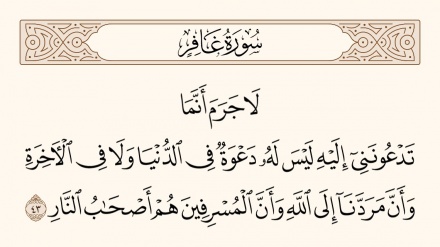 سُورَةُ غَافِرٍ
لَا جَرَمَ أَنَّمَا
تَدْعُونَنِيٓ إِلَيْهِ لَيْسَ لَهُۥ دَعْوَةٌ فِي ٱلدُّنْيَا وَلَا فِي ٱلْأٓخِرَةِ
وَأَنَّ مَرَدَّنَآ إِلَى ٱللَّهِ وَأَنَّ ٱلْمُسْرِفِينَ هُمْ أَصْحَٰبُ ٱلنَّارِ ٤٣